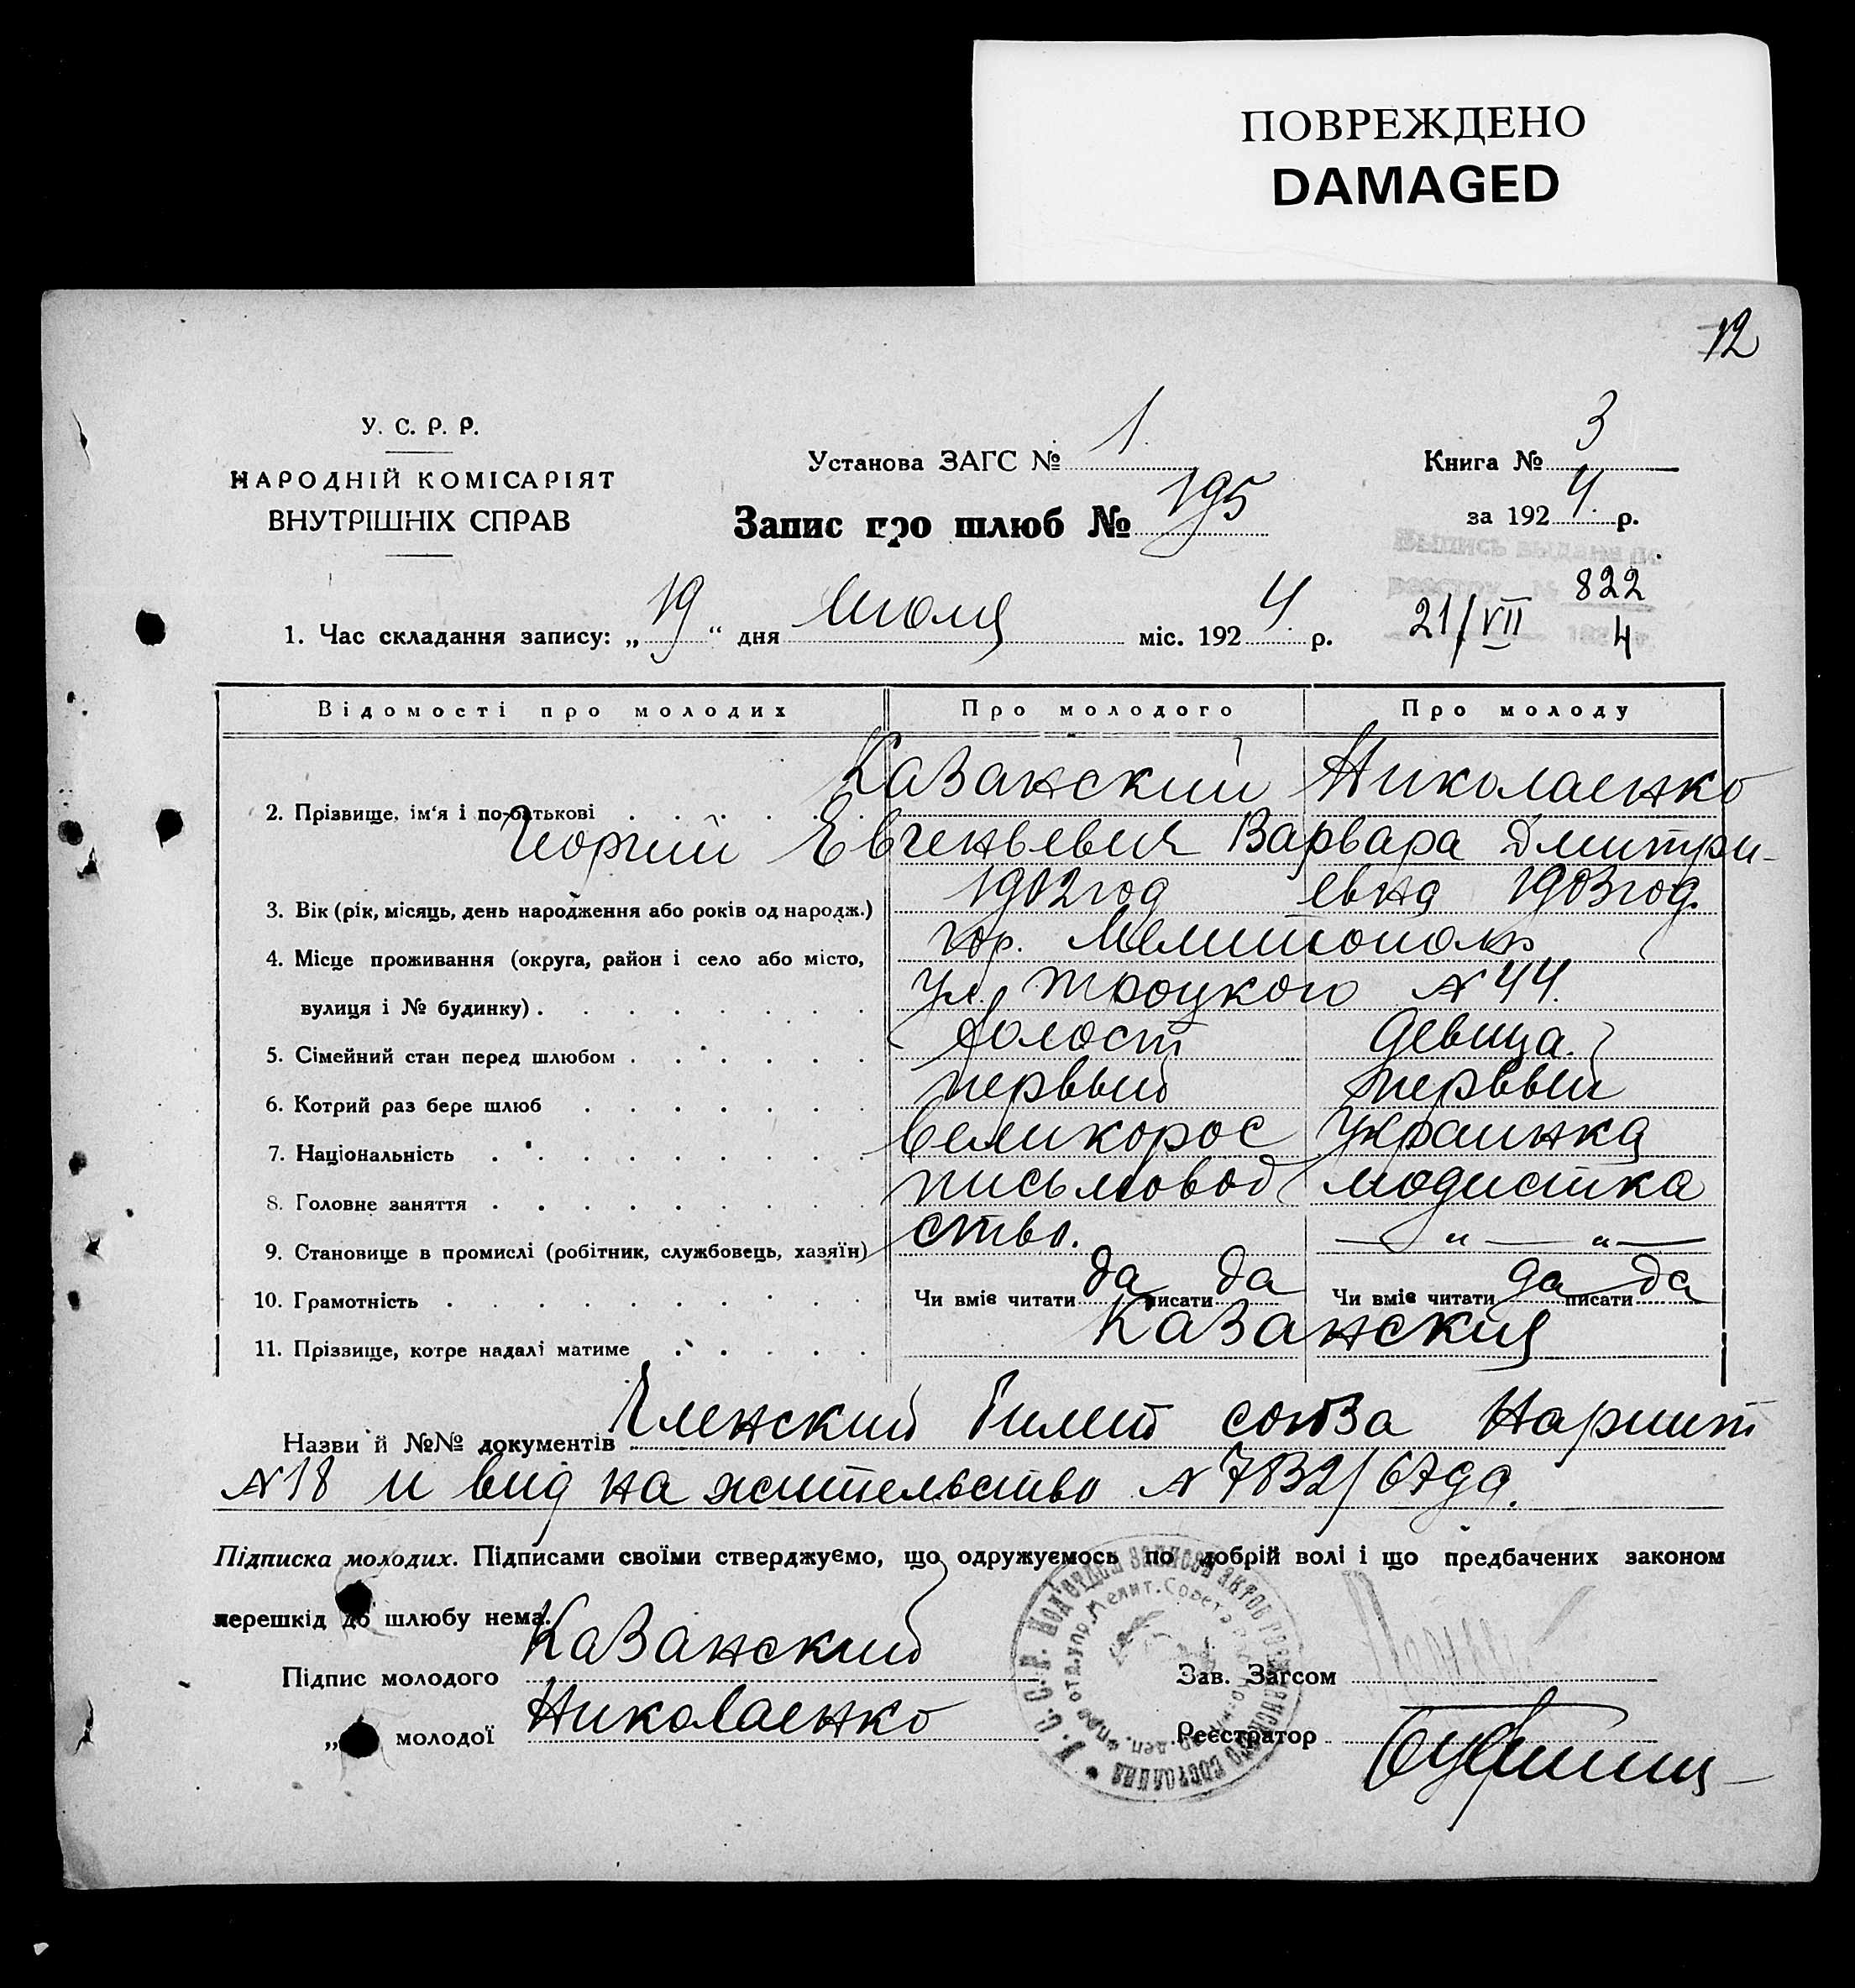 ПОВРЕЖДЕНО
DAMAGED
12
У. С. Р. Р.
НАРОДНІЙ КОМІСАРІЯТ
ВНУТРІШНІХ СПРАВ
Установа ЗАГС № 1.
Книга № 3
Запис про шлюб № 195
за 1924. р.
Выпись выдана по
реестру № 822
21/VII 1924 г.
1. Час складання запису: „19“ дня Июля міс. 1924. р.
Відомості про молодих Про молодого Про молоду
2. Прізвище, ім'я і по-батькові Казанский Николаенко
Георгий Евгеньевич Варвара Дмитри-
3. Вік (рік, місяць, день народження або років од народж.) 1902 год евна 1903 год.
4. Місце проживання (округа, район і село або місто, гор. Мелитополь
вулиця і № будинку) ул. Троцкого № 44.
5. Сімейний стан перед шлюбом холост девица.
6. Котрий раз бере шлюб первый первый
7. Національність великорос Украинка
8. Головне заняття письмовод модистка
9. Становище в промислі (робітник, службовець, хазяїн) ство. — „ — „ —
10. Грамотність Чи вміє читати да писати да Чи вміє читати да писати да
11. Прізвище, котре надалі матиме Казанския
Назви й №№ документів Членский билет союза Нарпит
№ 18 и вид на жительство № 7832/67да.
Підписка молодих. Підписами своїми стверджуємо, що одружуємось по добрій волі і що предбачених законом
перешкід до шлюбу нема.
Підпис молодого Казанский
Зав. Загсом
„ молодої Николаенко
Реєстратор
У.С.С.Р. Под'отдел записей актов гражданского состояния
отд. упр. Мелит. Совета